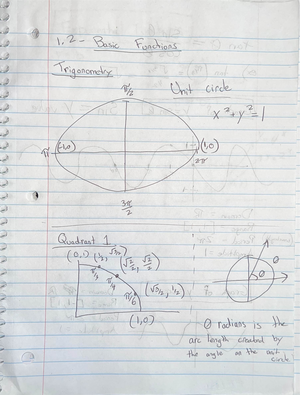 1.2 - Basic Functions
Trigonometry
Unit circle
π/2
x²+y²=1
π (-1,0) (1,0)
2π
3π/2
Quadrant 1
(0,1) (1/2, √3/2) (√2/2, √2/2)
π/3 π/4 π/6 (√3/2, 1/2)
θ θ
(1,0)
θ radians is the
arc length created by
the angle on the unit
circle